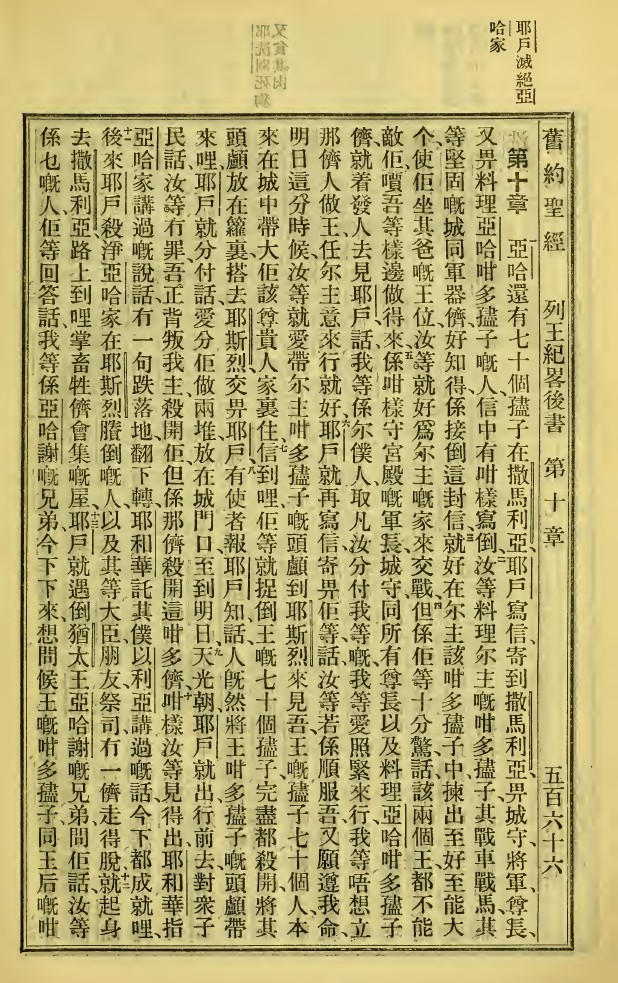 耶戶滅絕亞
哈家
舊約聖經 列王紀畧後書 第十章 五百六十六
第十章 亞哈還有七十個孻子在撒馬利亞、耶戶寫信寄到撒馬利亞、畀城守將軍尊長、
又畀料理亞哈咁多孻子嘅人、信中有咁樣寫倒、二汝等料理尔主嘅咁多孻子、其戰車戰馬其
等堅固嘅城同軍器、儕好知得、係接倒這封信、三就好在尔主該咁多孻子中、揀出至好至能大
个、使佢坐其爸嘅王位、汝等就好爲尔主嘅家來交戰、四但係佢等十分驚、話、該兩個王都不能
敵佢、嘪吾等樣邊做得來、五係咁樣守宮殿嘅軍長、城守、同所有尊長、以及料理亞哈咁多孻子
儕、就着發人去見耶戶、話、我等係尔僕人、取凡汝分付我等嘅、我等愛照緊來行、我等唔想立
那儕人做王、任尔主意來行就好、六耶戶就再寫信寄畀佢等話、汝等若係順服吾、又願遵我命、
明日這分時候、汝等就愛帶尔主咁多孻子嘅頭顱到耶斯烈來見吾、王嘅孻子七十個人、本
來在城中帶大佢該尊貴人家裏住、七信到哩、佢等就捉倒王嘅七十個孻子、完盡都殺開、將其
頭顱放在籮裏、搭去耶斯烈交畀耶戶、八有使者報耶戶知、話、人旣然將王咁多孻子嘅頭顱帶
來哩、耶戶就分付話、愛分佢做兩堆、放在城門口、至到明日、九天光朝耶戶就出行前去、對衆子
民話、汝等冇罪、吾正背叛我主、殺開佢、但係那儕殺開這咁多儕、十咁樣汝等見得出、耶和華指
亞哈家講過嘅說話、冇一句跌落地、翻下轉、耶和華託其僕以利亞講過嘅話、今下都成就哩、
十一後來耶戶殺淨亞哈家在耶斯烈賸倒嘅人、以及其等大臣、朋友、祭司、冇一儕走得脫、十二就起身
去撒馬利亞、路上到哩掌畜牲儕會集嘅屋、十三耶戶就遇倒猶太王亞哈謝嘅兄弟、問佢話、汝等
係乜嘅人、佢等回答話、我等係亞哈謝嘅兄弟、今下下來、想問候王嘅咁多孻子、同王后嘅咁